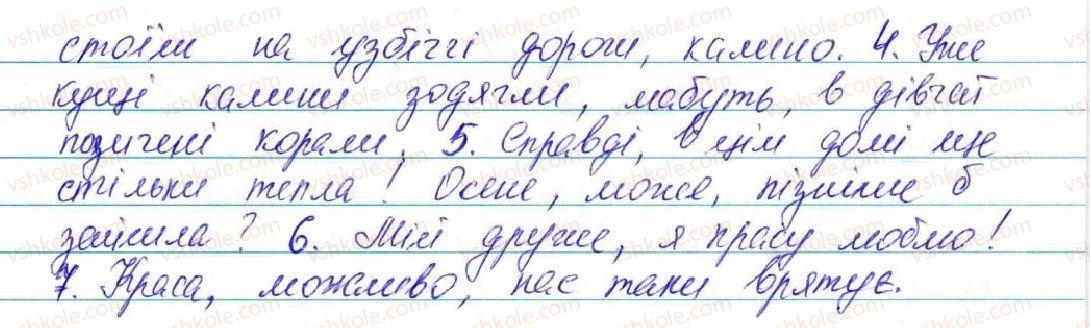 стоїш на узбіччі дороги, калино. 4. Уже
кущі калини зодягли, мабуть, в дівчат
позичені корали. 5. Справді, в цім домі ще
стільки тепла! Осене, може, пізніше б
зайшла? 6. Мій друже, я працу люблю!
7. Краса, можливо, нас таки врятує.